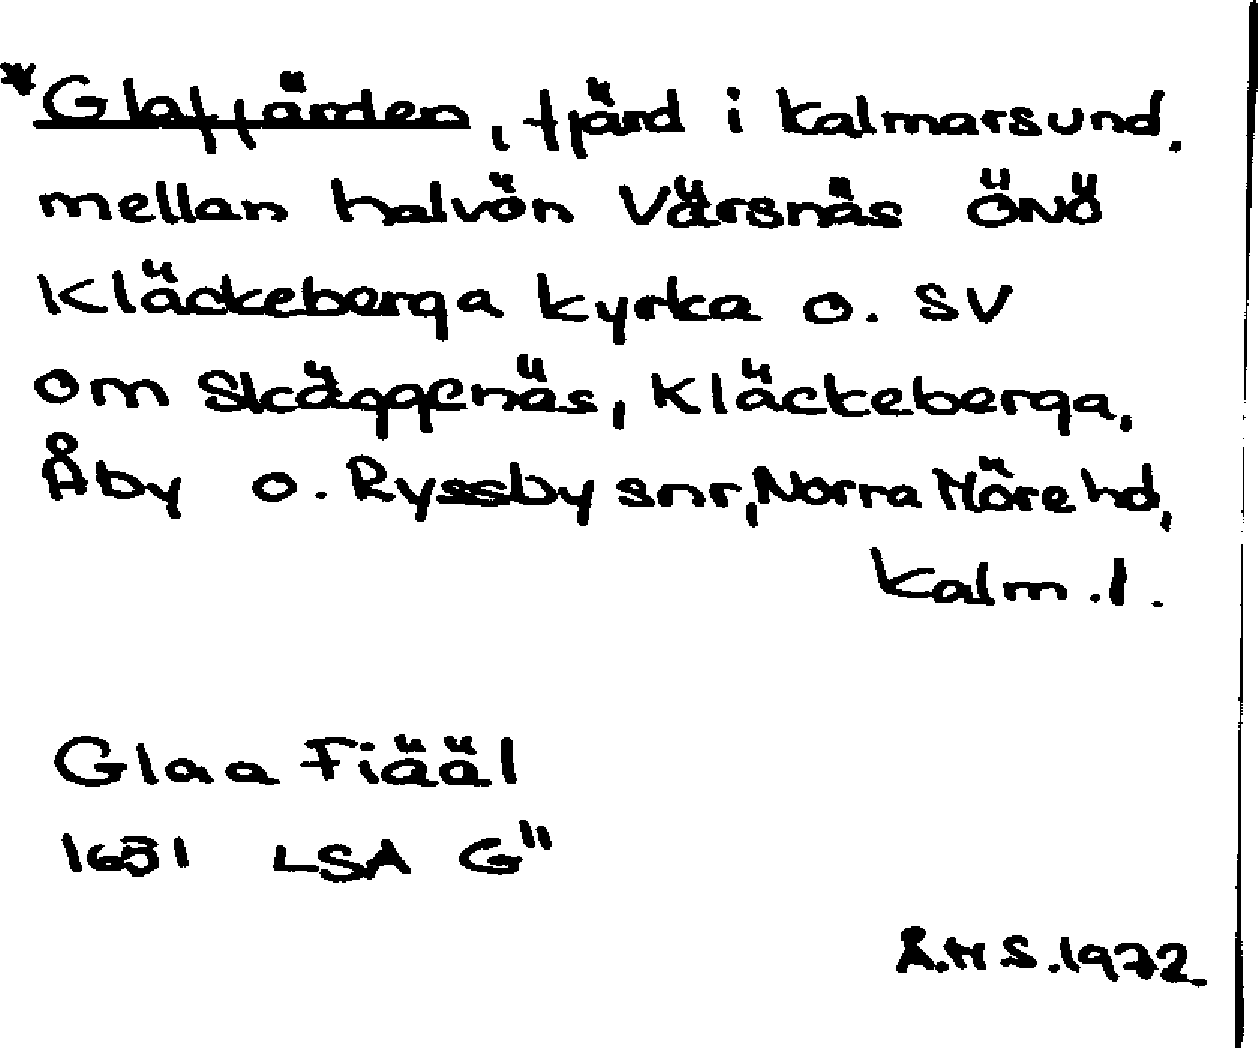 *Glafjärden, fjärd i Kalmarsund,
mellan halvön Värsnäs ÖNÖ
Kläckeberga kyrka o. SV
om Skäggenäs, Kläckeberga,
Åby o. Ryssby snr, Norra Möre hd,
Kalm. l.
Glaa Fiääl
1651 LSA G"
Å.H S. 1972